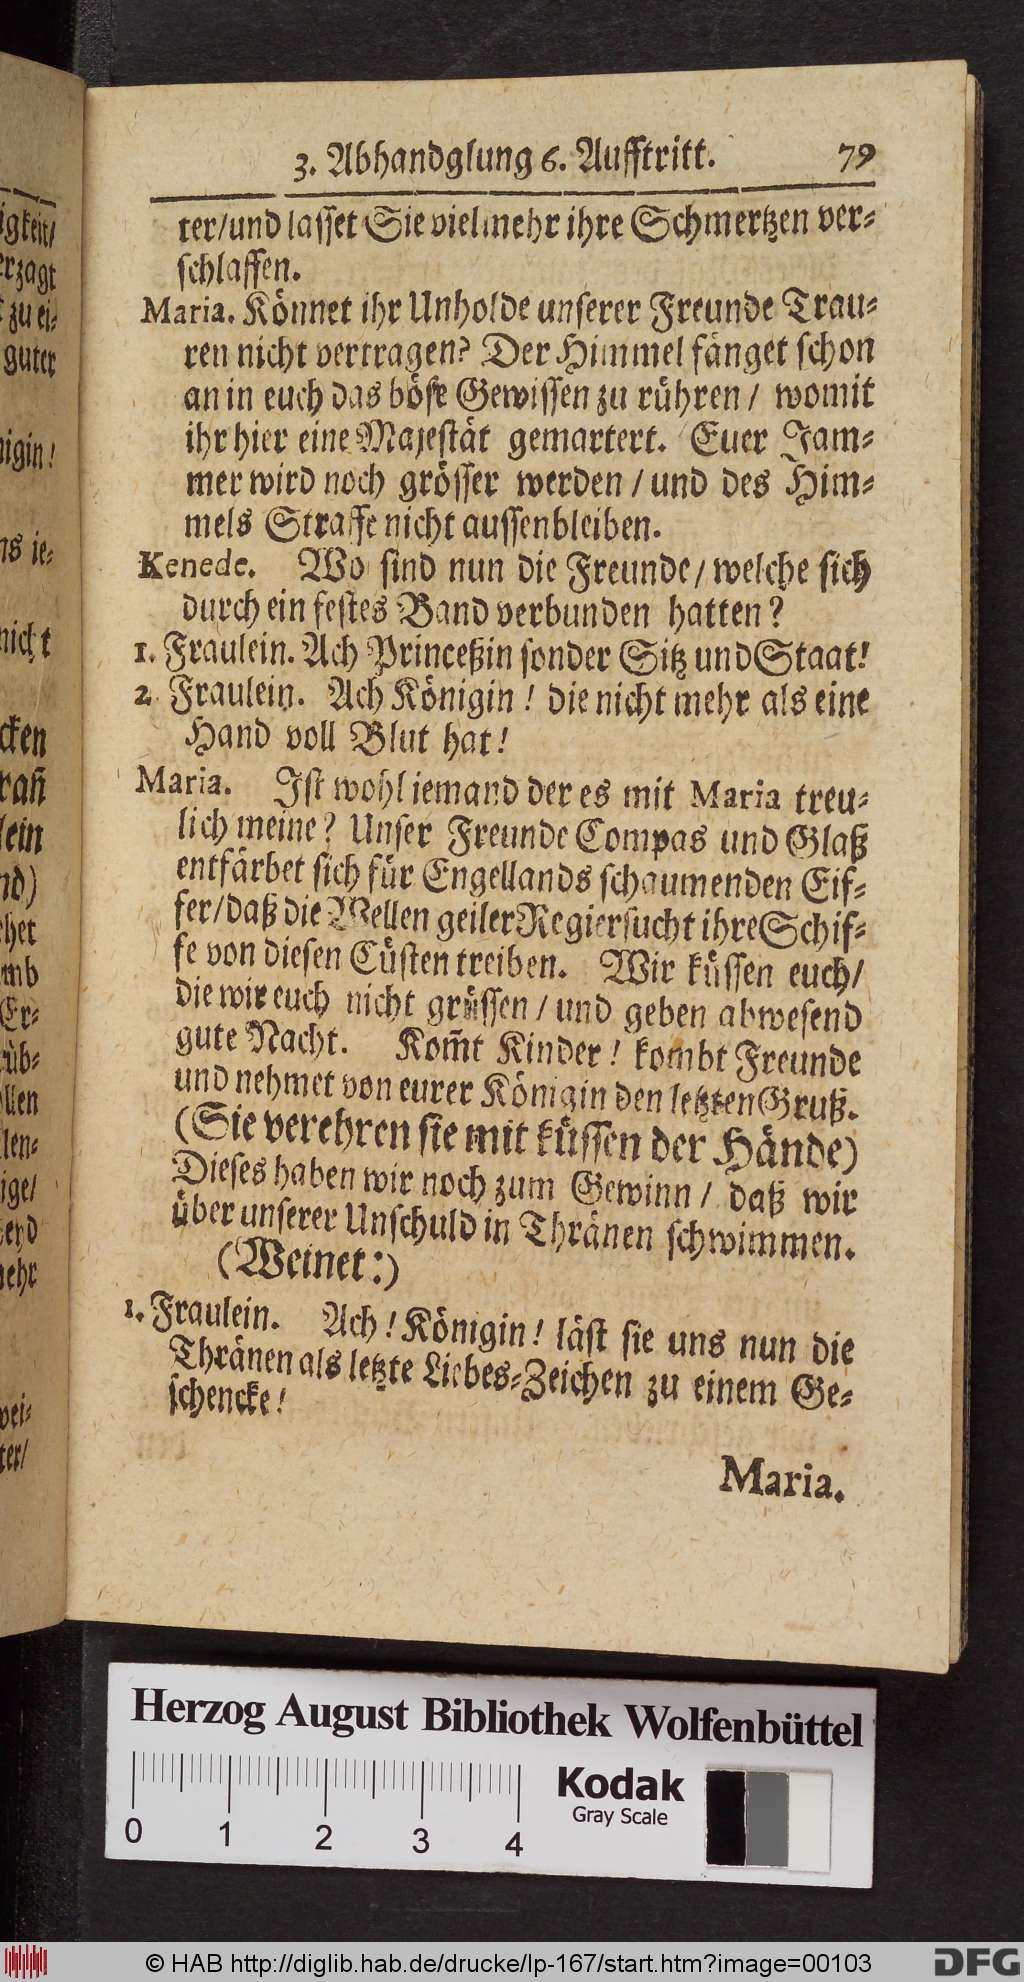 3. Abhandglung 6. Aufftritt. 79
ter/und lasset Sie vielmehr ihre Schmertzen ver-
schlaffen.
Maria. Könnet ihr Unholde unserer Freunde Trau-
ren nicht vertragen? Der Himmel fänget schon
an in euch das böse Gewissen zu rühren / womit
ihr hier eine Majestät gemartert. Euer Jam-
mer wird noch grösser werden / und des Him-
mels Straffe nicht aussenbleiben.
Kenede. Wo sind nun die Freunde / welche sich
durch ein festes Band verbunden hatten?
1. Fraulein. Ach Princeßin sonder Sitz und Staat!
2. Fraulein. Ach Königin! die nicht mehr als eine
Hand voll Blut hat!
Maria. Ist wohl iemand der es mit Maria treu-
lich meine? Unser Freunde Compas und Glaß
entfärbet sich für Engellands schaumenden Eif-
fer/daß die Wellen geiler Regiersucht ihre Schif-
fe von diesen Cüsten treiben. Wir küssen euch/
die wir euch nicht grüssen / und geben abwesend
gute Nacht. Kom̃t Kinder! kombt Freunde
und nehmet von eurer Königin den letzten Gruß.
(Sie verehren sie mit küssen der Hände)
Dieses haben wir noch zum Gewinn / daß wir
über unserer Unschuld in Thränen schwimmen.
(Weinet:)
1. Fraulein. Ach! Königin! läst sie uns nun die
Thränen als letzte Liebes-Zeichen zu einem Ge-
schencke!
Maria.
igkeit/
erzagt
zu ei-
guter
nigin!
ns ie-
nicht
cken
rañ
lein
nd)
het
mb
(Er-
rüb-
llen
len-
ige/
end
ehr
wei-
ter/
Herzog August Bibliothek Wolfenbüttel
Kodak
Gray Scale
0 1 2 3 4
© HAB http://diglib.hab.de/drucke/lp-167/start.htm?image=00103
DFG